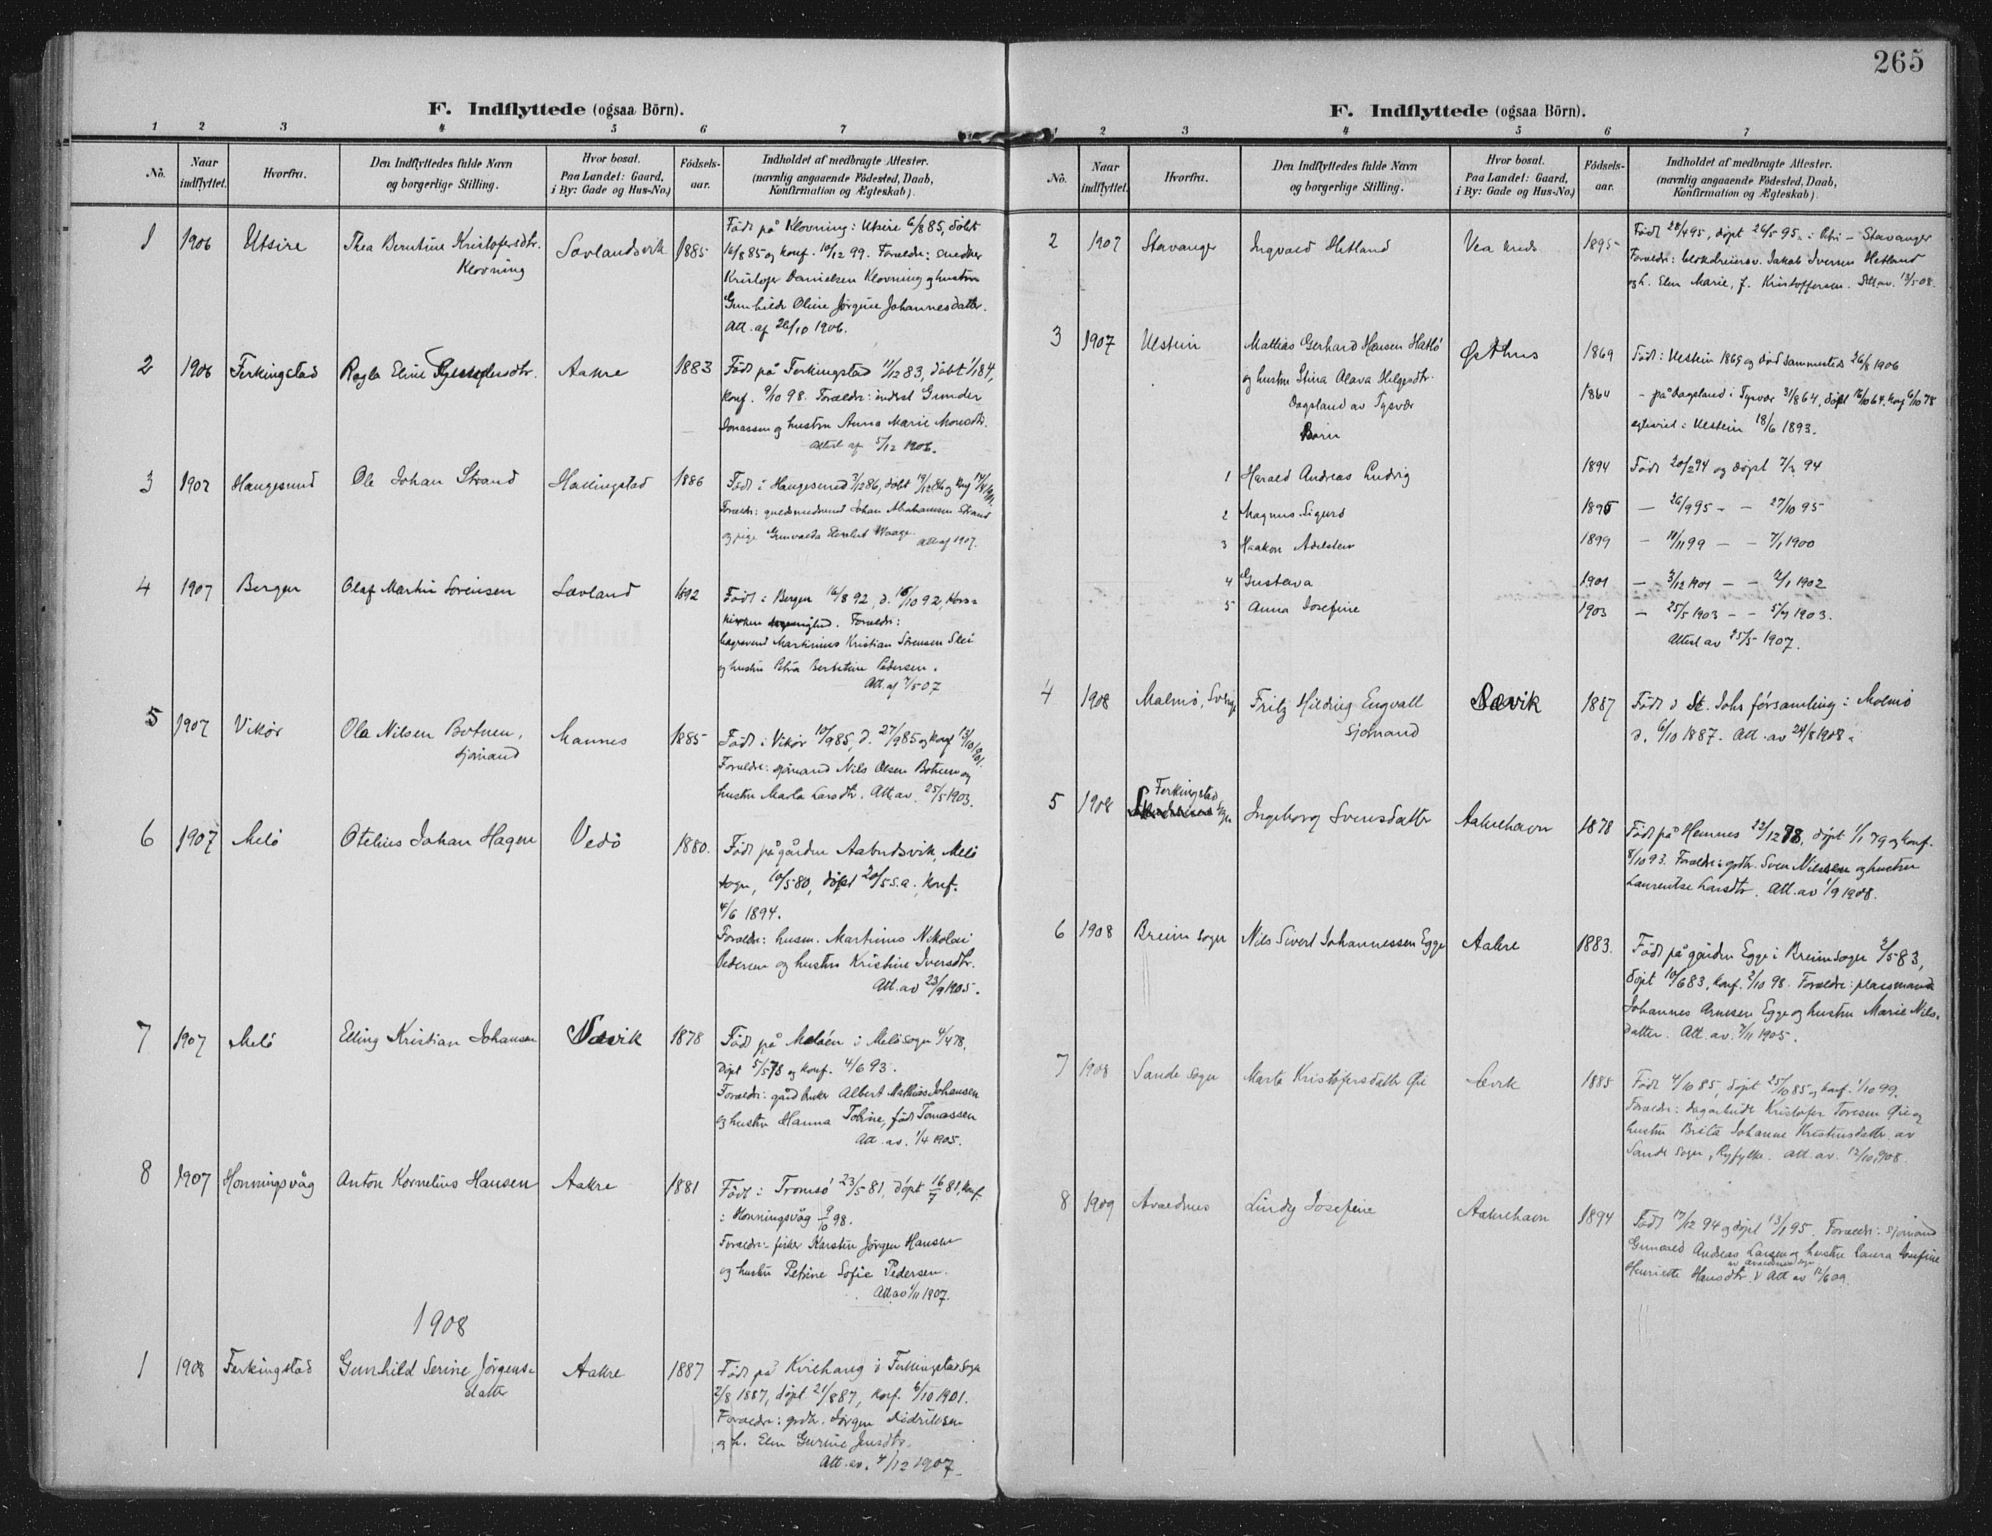 265
F. Indflyttede (ogsaa Börn).
1 2 3 4 5 6 7
No.
Naar indflyttet.
Hvorfra.
Den Indflyttedes fulde Navn
og borgerlige Stilling.
Hvor bosat.
Paa Landet: Gaard,
i By: Gade og Hus-No.)
Födsels-
aar.
Indholdet af medbragte Attester.
(navnlig angaaende Födested, Daab,
Konfirmation og Ægteskab).
1 1906 Utsire Thea Berntine Kristofersdtr. Sævlandsvik 1885
Klovning
Født på Klovning i Utsire 6/8 85, døbt
16/8 85 og konf. 10/12 99. Forældr: snedker
Kristofer Danielsen Klovning og hustru
Gunhilde Oline Jørgine Johannesdatter.
Att. af 26/10 1906.
2 1906 Ferkingstad Ragla Eline Aakre 1883
Født på Ferkingstad 11/12 83, døbt 1/1 84,
konf. 9/10 98. Forældr: inderst Gunder
Jonassen og hustru Anna Marie Monsdtr.
Attest af 5/12 1906.
3 1907 Haugesund Ole Johan Strand Hallingstad 1886
Født i Haugesund 3/12 86, døbt
Forældr: guldsmedsvend Johan Abrahamsen Strand
og pige Gunvalda Waage.
Att af 1907.
4 1907 Bergen Olaf Martin Sørensen Sævland 1892
Født i Bergen 16/8 92, d. 16/10 92, Kors-
kirken menighed. Forældr:
bagersvend Martinius Kristian Sørensen
og hustru Petra Pedersen.
Att. af 7/5 07
5 1907 Vikør Ola Nilsen Botnen, Mannes 1885
sjømand
Født i Vikør 10/9 85, d. 27/9 85 og konf 13/10 1901.
Forældre: sjømand Nils Olsen Botnen og
hustru Marta Larsdtr. Att. av. 25/5 1903.
6 1907 Melö Otelius Johan Hagen Vedö 1880.
Født på gården Aabudsvik, Melö
sogn, 10/5 80, døpt 20/5 s.a., konf.
4/6 1894.
Forældr: husm. Martinus Nikolai
Pedersen og hustru Kristine Iversdtr.
Att. av 23/9 1905.
7 1907 Melö Elling Kristian Johansen Sævik 1878
Født på Meløen i Melö sogn 4/4 78,
døpt 5/5 78 og konf. 4/6 93.
Forældr: gårdbruker Albert Mathias Johansen
og hustru Hanna Tobine, født Tomassen
Att. av. 1/4 1905.
8 1907 Honningsvåg Anton Kornelius Hansen Aakre 1881
Født i Tromsö 23/5 81, døpt 16/7 81, konf.
i Honningsvåg 9/10 98.
Forældr: fisker Karsten Jørgen Hansen
og hustru Petrine Sofie Pedersen.
Att av 1/11 1907.
1908
1 1908 Ferkingstad Gunhild Serine Jørgens- Aakre 1887
datter
Født på Kvilhaug i Ferkingstad sogn
2/8 1887, døpt 21/8 87, konf. 6/10 1901.
Forældr: grdbr. Jørgen Didriksen
og h. Elen Gurine Jensdtr.
Att. av. 4/12 1907.
F. Indflyttede (ogsaa Börn).
1 2 3 4 5 6 7
No.
Naar indflyttet.
Hvorfra.
Den Indflyttedes fulde Navn
og borgerlige Stilling.
Hvor bosat.
Paa Landet: Gaard,
i By: Gade og Hus-No.)
Födsels-
aar.
Indholdet af medbragte Attester.
(navnlig angaaende Födested, Daab,
Konfirmation og Ægteskab).
2 1907 Stavanger Ingvald Hetland Vea 1895
Født 28/4 95, døpt 26/5 95 i Petri - Stavanger
Forældr: Jakob Iversen Hetland
og h. Elen Marie, f. Kristoffersen. Att av. 13/5 08.
3 1907 Utstein Mattias Gerhard Hansen Østhus 1869
Født i Utstein 1869 og død sammesteds 26/8 1906
og hustru Stina Alava Helgesdtr. 1864
Dagsland av Tysvær
- på Dagsland i Tysvær 31/8 64, døpt 16/10 64, konf 6/10 78
egteviet i Utstein 18/6 1893.
Børn
1 Harald Andreas Ludvig 1894 Født 20/2 94 og døpt 94
2 Magnus Sigurd 1895 - 26/9 95 - - 27/10 95
3 Haakon Adelsten 1899 - 11/11 99 - - 7/1 1900
4 Gustava 1901 - 3/12 1901 - - 12/1 1902
5 Anna Josefine 1903 - 25/5 1903 - - 5/7 1903.
Attest av 25/5 1907.
4 1908 Malmö, Sverige Fritz Hilding Engvall Sævik 1887
sjømand
Født i St. Johs församling i Malmö
d. 6/10 1887. Att. av 24/8 1908.
5 1908 Ferkingstad Ingeborg Svensdatter Aakrehavn 1878
Født på Hemnes 23/12 78, døpt 1/1 79 og konf.
8/10 93. Forældr: grdbr. Sven Nilssen og hustru
Laurentse Larsdtr. Att. av 1/9 1908.
6 1908 Breim sogn Nils Sivert Johannessen Egge Aakre 1883.
Født på gården Egge i Breim sogn 2/5 83,
døpt 10/6 83, konf. 2/10 98. Forældre: plassmand
Johannes Arnesen Egge og hustru Marie Nils-
datter. Att. av. 7/11 1905.
7 1908 Sande sogn Marta Kristofersdatter Øie Sævik 1885
Født 4/10 85, døpt 25/10 85 og konf. 1/10 99.
Forældre: dagarbeider Kristofer Toresen Øie og
hustru Brita Johanne Kristensdatter av
Sande sogn, Ryfylke. Att. av. 12/10 1908.
8 1909 Avaldnes Lindy Josefine Aakrehavn 1894
Født 17/12 94 og døpt 13/1 95. Forældr: sjømand
Gunvald Andreas Larsen og hustru Laura Josefine
av Avaldsnes sogn
Henriette Hansdtr. Att av 12/6 09.